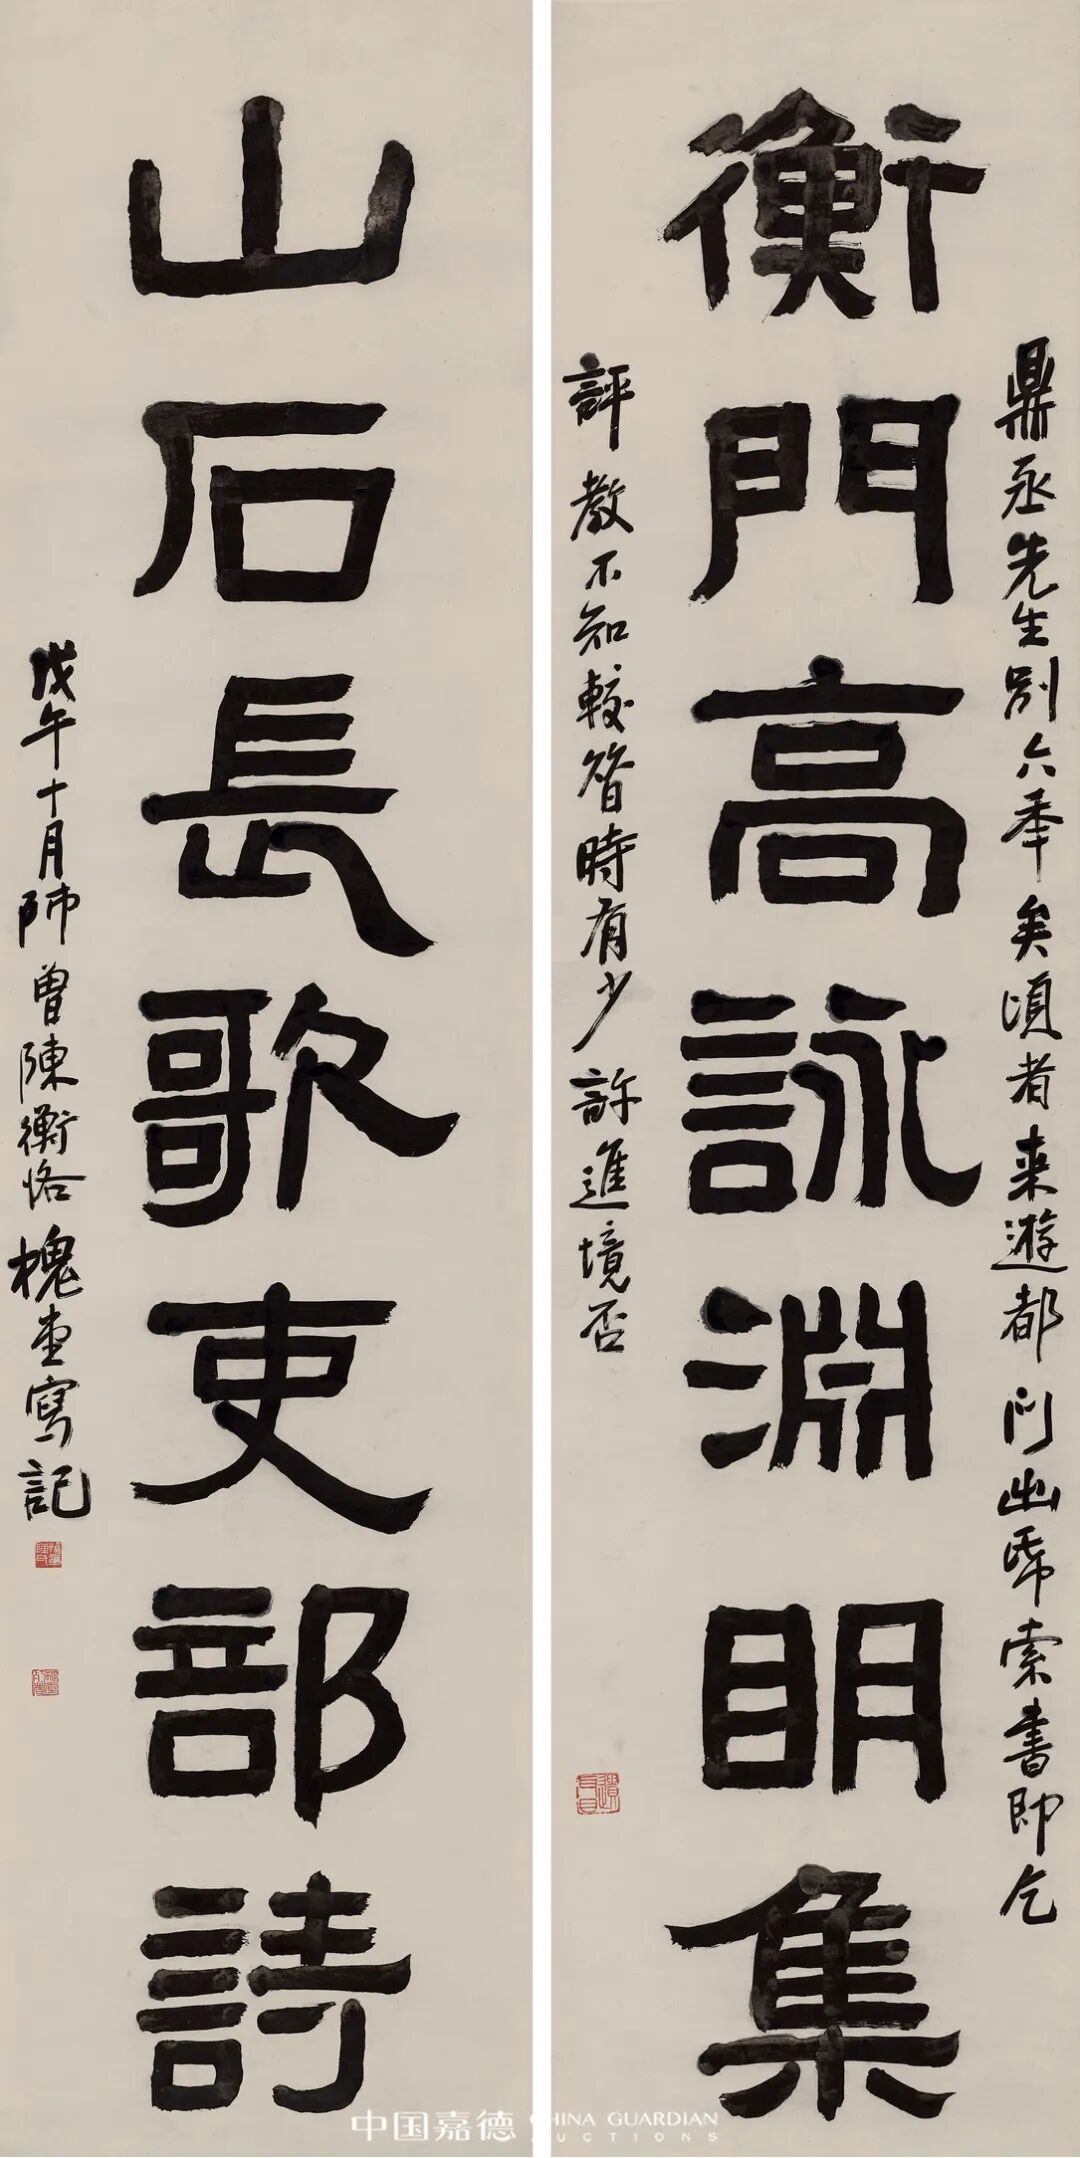 鼎丞先生別六秊矣頃者来遊都門出帋索書即乞
衡門高詠淵明集
評教不知較昔時有少許進境否
山石長歌吏部詩
戊午十月師曾陳衡恪槐堂寫記
中国嘉德 CHINA GUARDIAN AUCTIONS